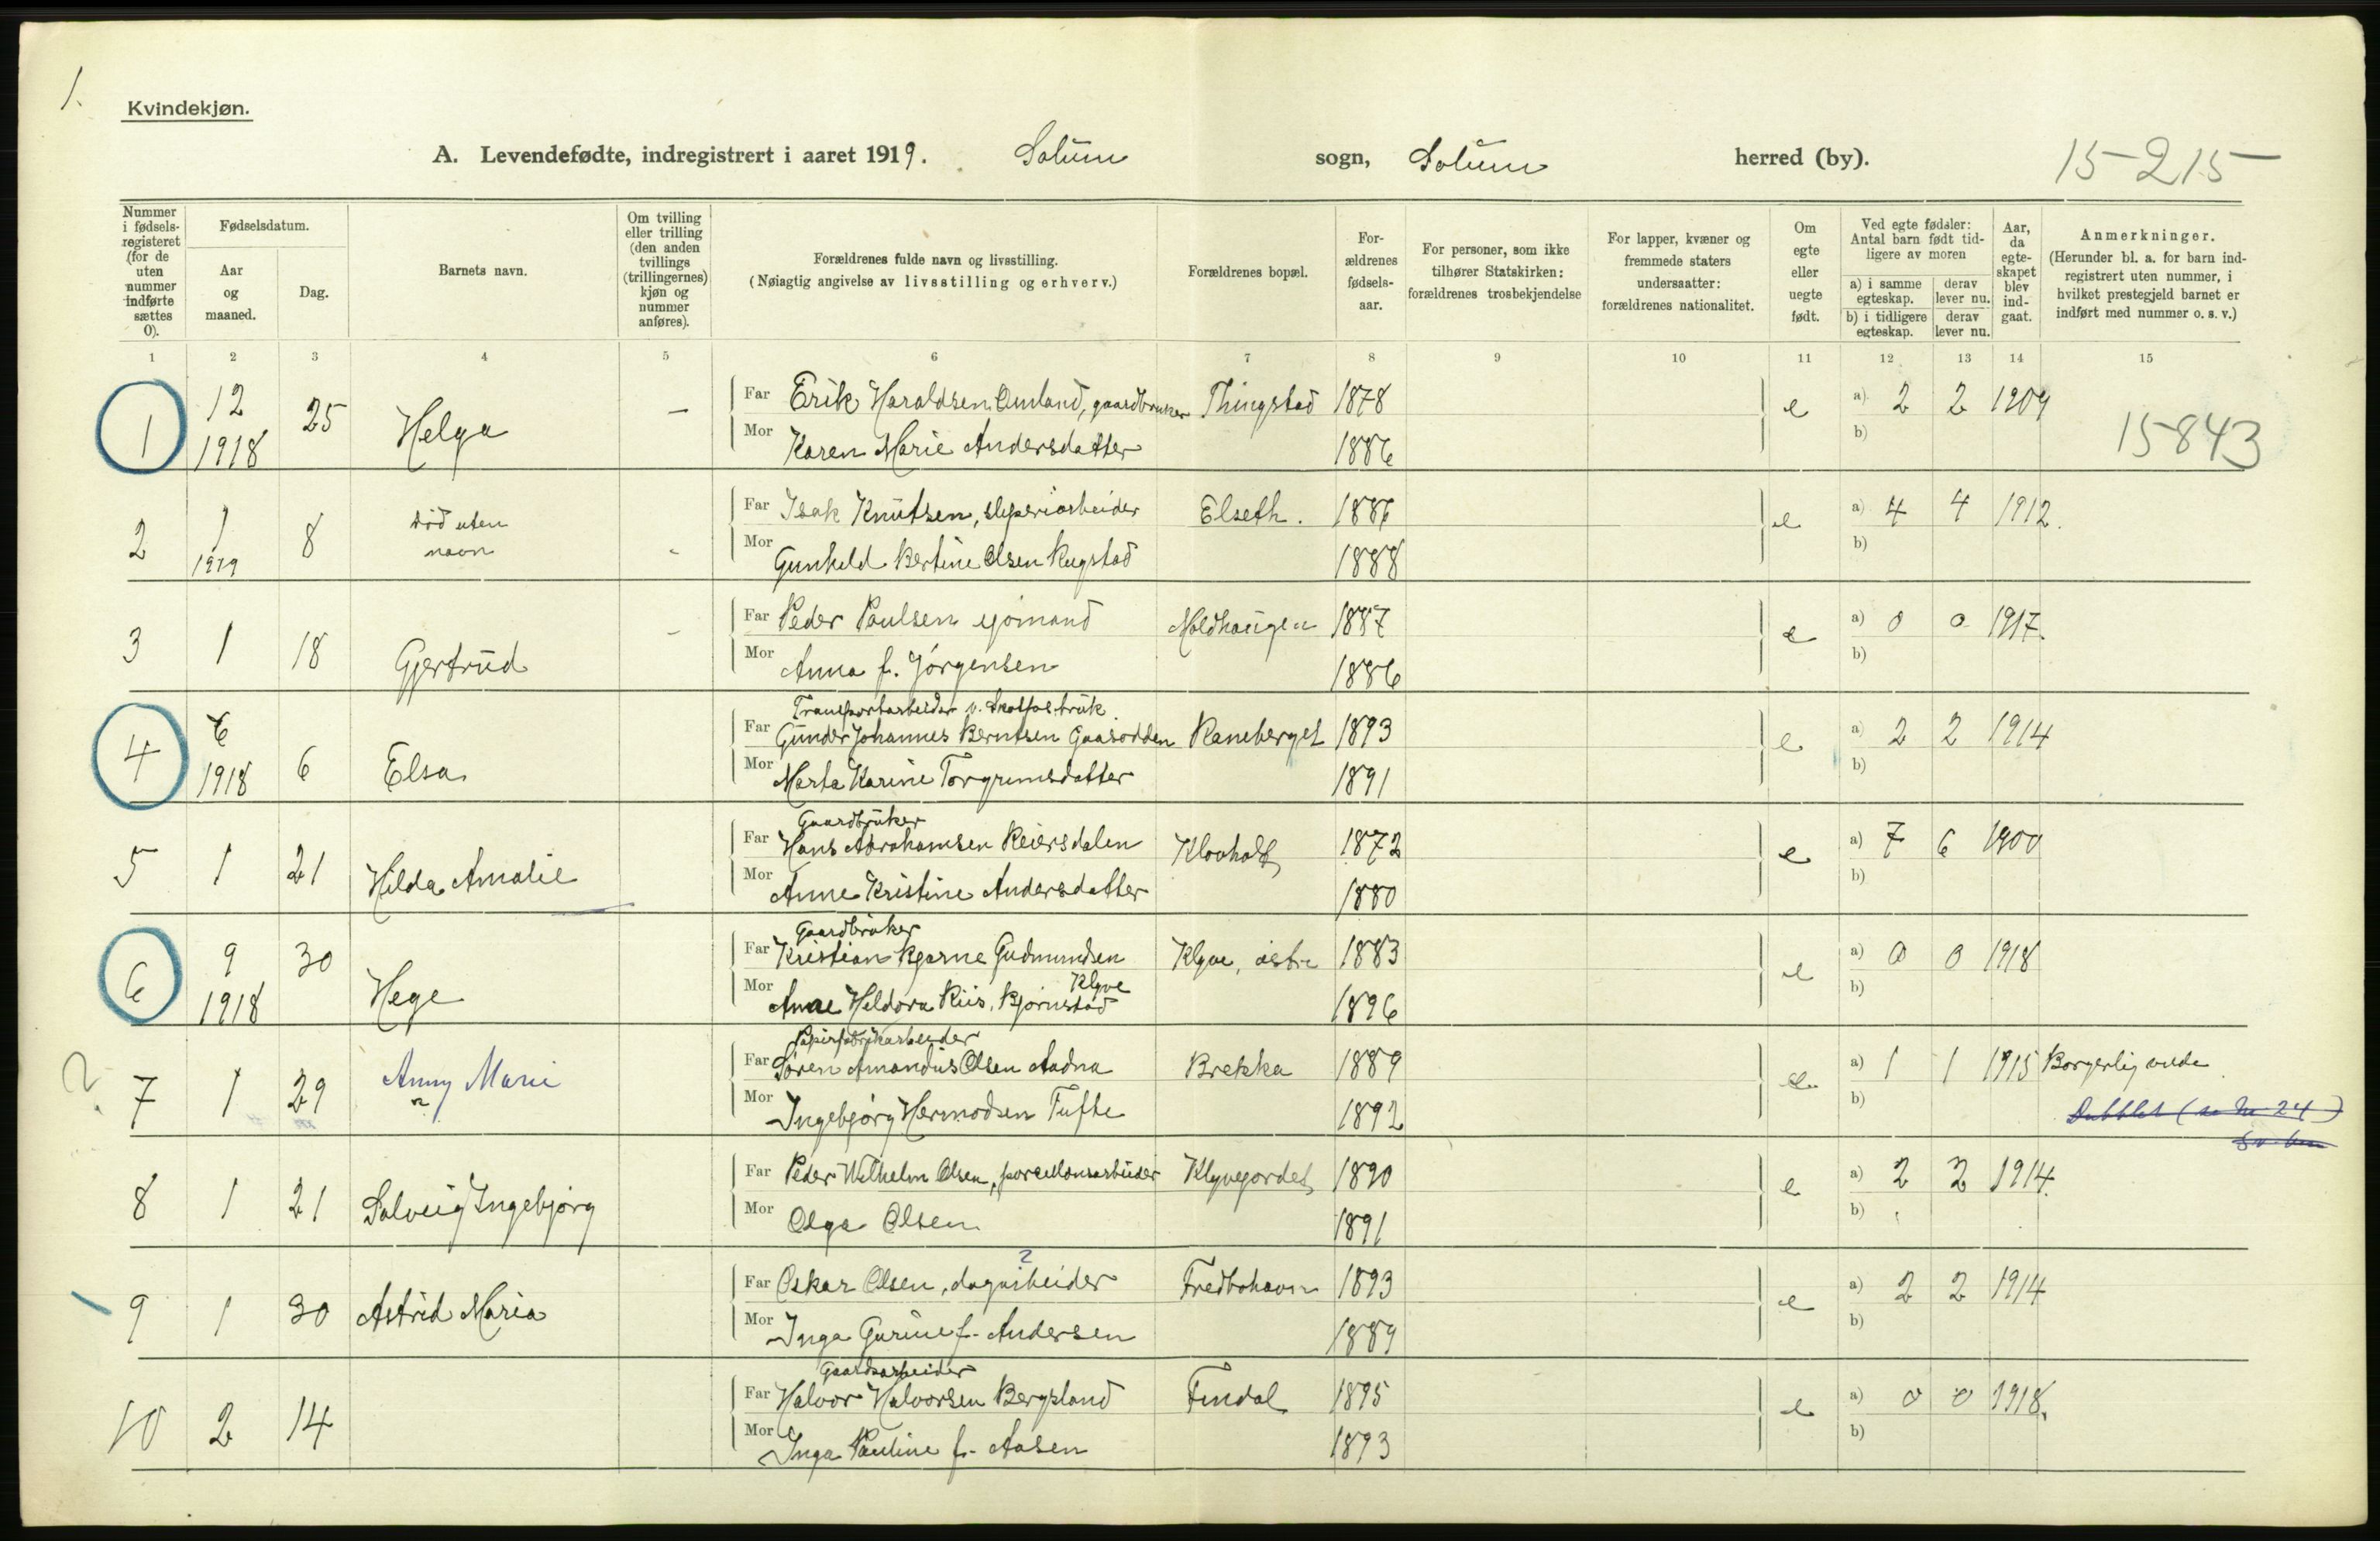 1.
Kvindekjøn.
A. Levendefødte, indregistrert i aaret 1919. Solum sogn, Solum herred (by). 15-215
Nummer i fødsels-registeret (for de uten nummer indførte sættes 0).
Fødselsdatum.
Aar og maaned.
Dag.
Barnets navn.
Om tvilling eller trilling (den anden tvillings (trillingernes) kjøn og nummer anføres).
Forældrenes fulde navn og livsstilling.
(Nøiagtig angivelse av livsstilling og erhverv.)
Forældrenes bopæl.
For-ældrenes fødsels-aar.
For personer, som ikke tilhører Statskirken: forældrenes trosbekjendelse
For lapper, kvæner og fremmede staters undersaatter: forældrenes nationalitet.
Om egte eller uegte født.
Ved egte fødsler: Antal barn født tid-ligere av moren
a) i samme egteskap.
derav lever nu.
b) i tidligere egteskap.
derav lever nu.
Aar, da egte-skapet blev ind-gaat.
Anmerkninger.
(Herunder bl. a. for barn ind-registrert uten nummer, i hvilket prestegjeld barnet er indført med nummer o. s. v.)
1 2 3 4 5 6 7 8 9 10 11 12 13 14 15
1 12 1918 25 Helga - Far Erik Haraldsen Omland, gaardbruker Thingstad 1878 e a) 2 2 1909
Mor Karen Marie Andersdatter 1886 b) 15843
2 1 1919 8 død uten navn - Far Isak Knutsen, sliperiarbeider Elseth. 1886 e a) 4 4 1912.
Mor Gunhild Bertine Olsen Rugstad 1888 b)
3 1 18 Gjertrud - Far Peder Paulsen sjømand Moldhaugen 1887 e a) 0 0 1917.
Mor Anna f. Jørgensen 1886 b)
Transportarbeider v. Skotfos bruk
4 1918 6 Elsa Far Gunder Johannes Berntsen Gaasodden Raneberget 1893 e a) 2 2 1914
Mor Marta Karine Torgrimsdatter 1891 b)
Gaardbruker
5 1 21 Hilda Amalie Far Hans Abrahamsen Reiersdalen Klovholt 1872 e a) 7 6 1900
Mor Anne Kristine Andersdatter 1880 b)
Gaardbruker
6 9 1918 30 Hege Far Kristian Bjarne Gudmundsen Klyve Klyve, østre 1883 e a) 0 0 1918
Mor Anne Heldora Riis, Bjørnstad 1896 b)
Papirfabrikarbeider
? 7 1 29 Anny Marie Far Søren Amandus Olsen Aadna Brekka 1889 e a) 1 1 1915 Borgerlig viede
Mor Ingebjørg Hermodsen Tufte 1892 b) Dubblet (se nr 24)
8 1 21 Solveig Ingebjørg Far Peder Wilhelm Olsen, porcellænsarbeider Klyvejordet 1890 e a) 2 2 1914.
Mor Olga Olsen 1891 b)
?
9 1 30 Astrid Maria Far Oskar Olsen, dagarbeider Fredbohavn 1893 e a) 2 2 1914
Mor Inga Gurine f. Andersen 1889 b)
Gaardsarbeider
10 2 14 Far Halvor Halvorsen Bergsland Findal 1895 e a) 0 0 1918.
Mor Inga Pauline f. Aasen 1893 b)